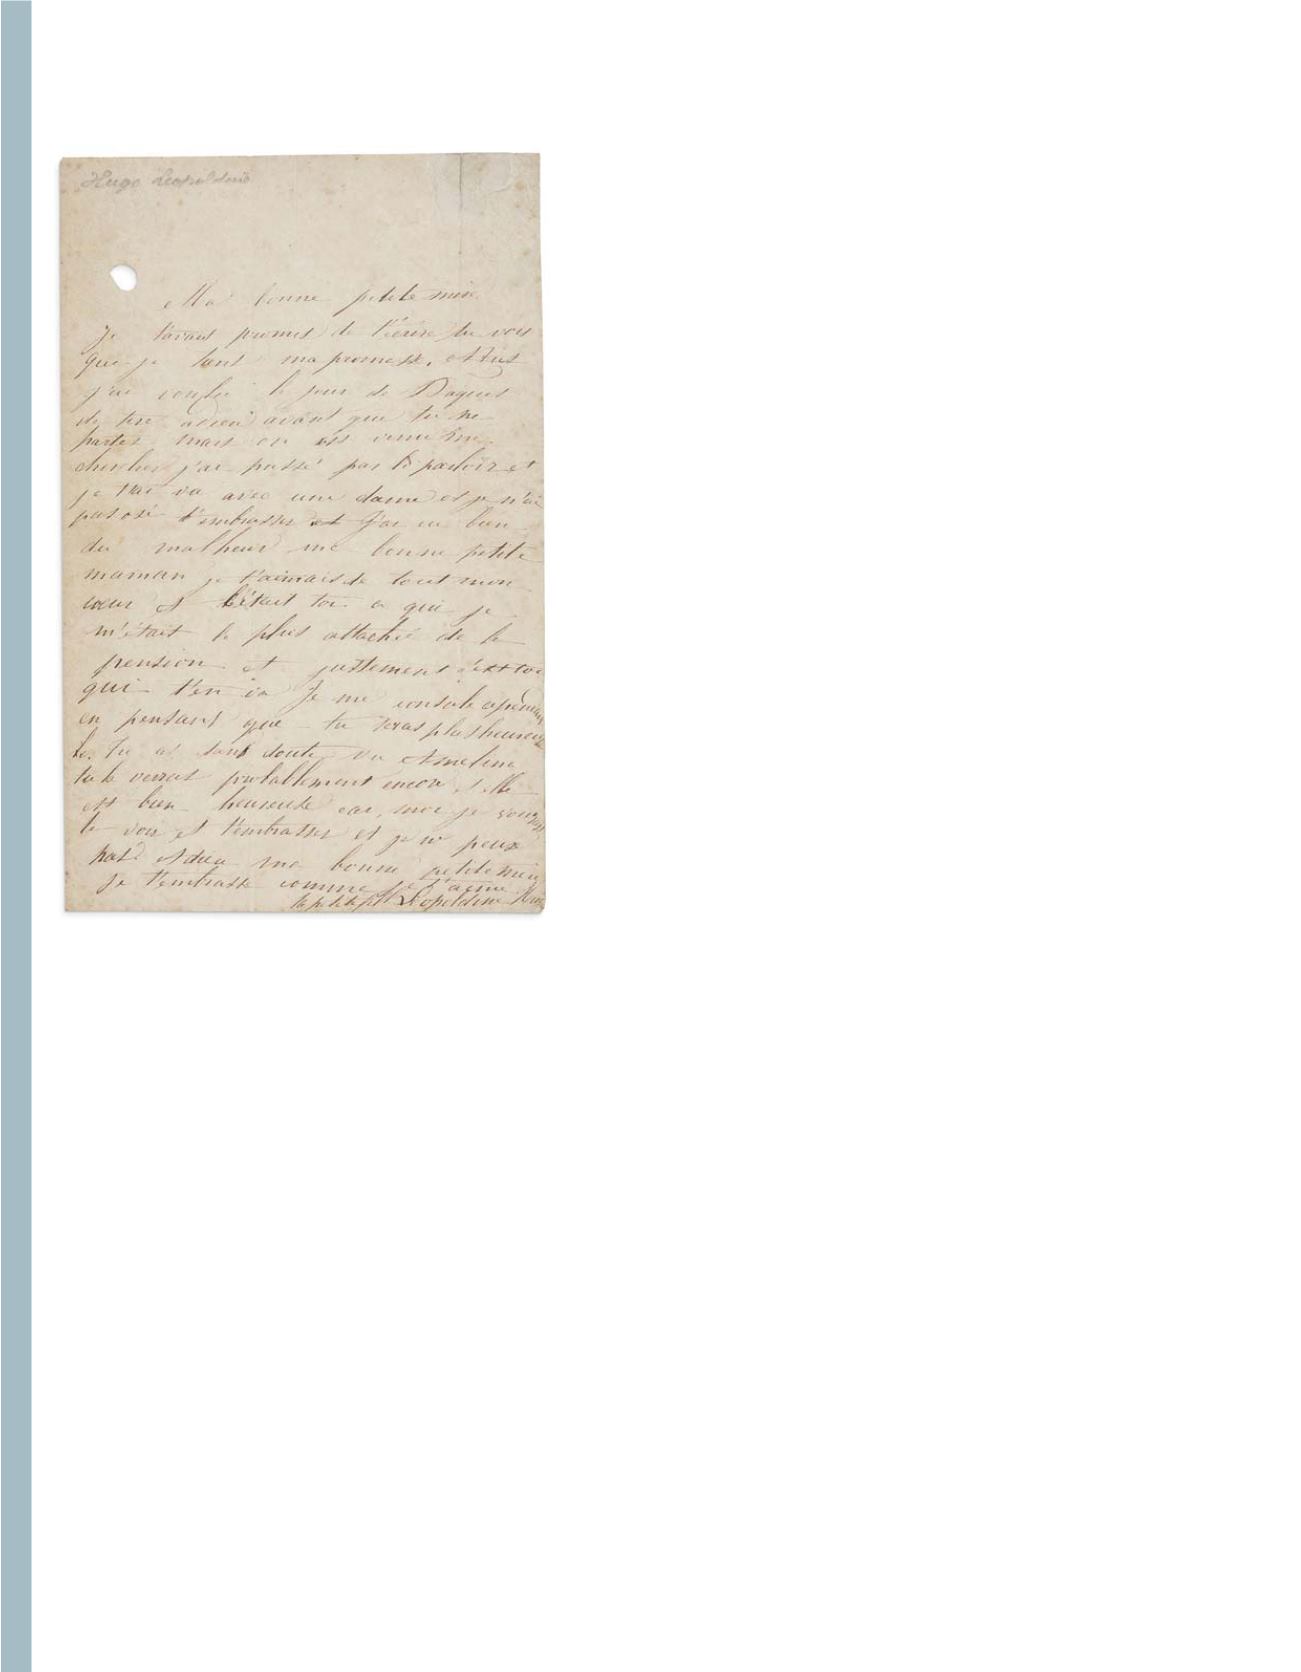 Hugo Leopoldine
Ma bonne petite mère
Je t'avais promis de t'écrire tu vois
que je tient ma promesse.
j'ai voulu le jour de Paques
de dire adieu avant que tu ne
partes mais on est venu me
chercher j'ai passé par le parloir et
je t'ai vu avec une dame et je n'ai
pas osé t'embrasser et j'ai eu bien
du malheur ma bonne petite
maman je t'aimais de tout mon
cœur et c'était toi a qui je
m'était le plus attachée de la
pension et justement c'est toi
qui t'en va Je me console
en pensant que tu seras plus heureuse
Tu as sans doute vu
tu la verras probablement encore, elle
est bien heureuse car, moi je voudrais
te voir et t'embrasser et je ne peux
pas Adieu ma bonne petite mère
je t'embrasse comme je t'aime
ta petite fille Léopoldine